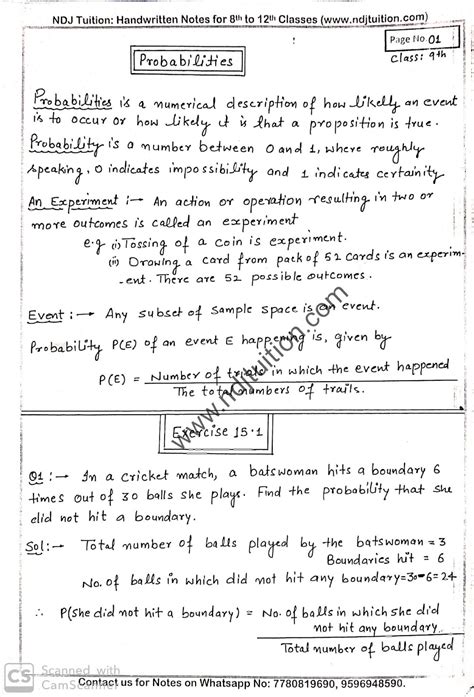 NDJ Tuition: Handwritten Notes for 8th to 12th Classes (www.ndjtuition.com)
Page No. 01
Class: 9th
Probabilities
Probabilities is a numerical description of how likelly an event
is to occur or how likely it is that a proposition is true.
Probability is a number between 0 and 1, where roughly
speaking, 0 indicates impossibility and 1 indicates certainity
An Experiment :→ An action or operation resulting in two or
more outcomes is called an experiment
e.g (i) Tossing of a coin is experiment.
(ii) Drawing a card from pack of 52 cards is an experim-
-ent. There are 52 possible outcomes.
Event :→ Any subset of sample space is an event.
Probability P(E) of an event E happening is, given by
P(E) = Number of trials in which the event happened
The total numbers of trails.
www.ndjtuition.com
Exercise 15.1
Q1 :→ In a cricket match, a batswoman hits a boundary 6
times out of 30 balls she plays. Find the probability that she
did not hit a boundary.
Sol :→ Total number of balls played by the batswoman = 3
Boundaries hit = 6
No. of balls in which did not hit any boundary = 30-6 = 24
∴ P(she did not hit a boundary) = No. of balls in which she did
not hit any boundary
Total number of balls played
CS Scanned with
CamScanner
Contact us for Notes on Whatsapp No: 7780819690, 9596948590.